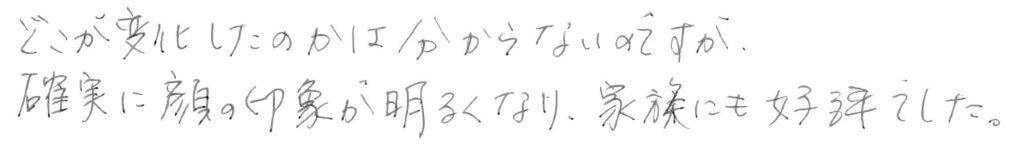 どこが変化したのかは分からないのですが、
確実に顔の印象が明るくなり、家族にも好評でした。